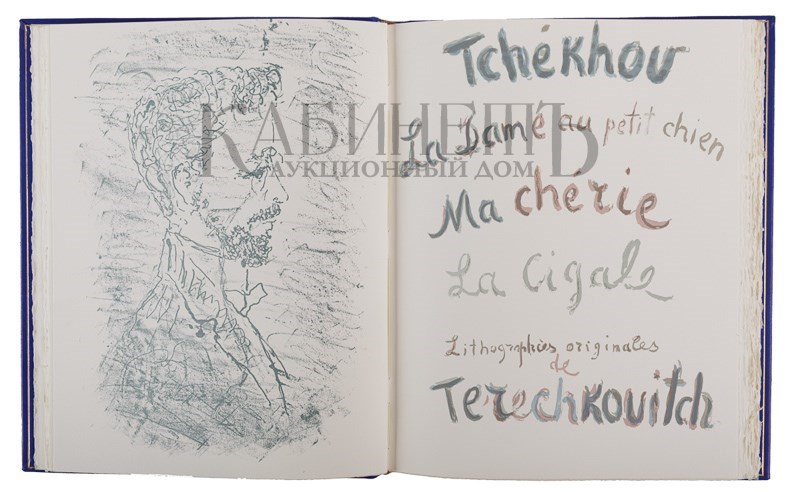 Tchékhov
La Dame au petit chien
Ma chérie
La Cigale
Lithographies originales
de
Terechkovitch
КАБИНЕТЪ
АУКЦИОННЫЙ ДОМ